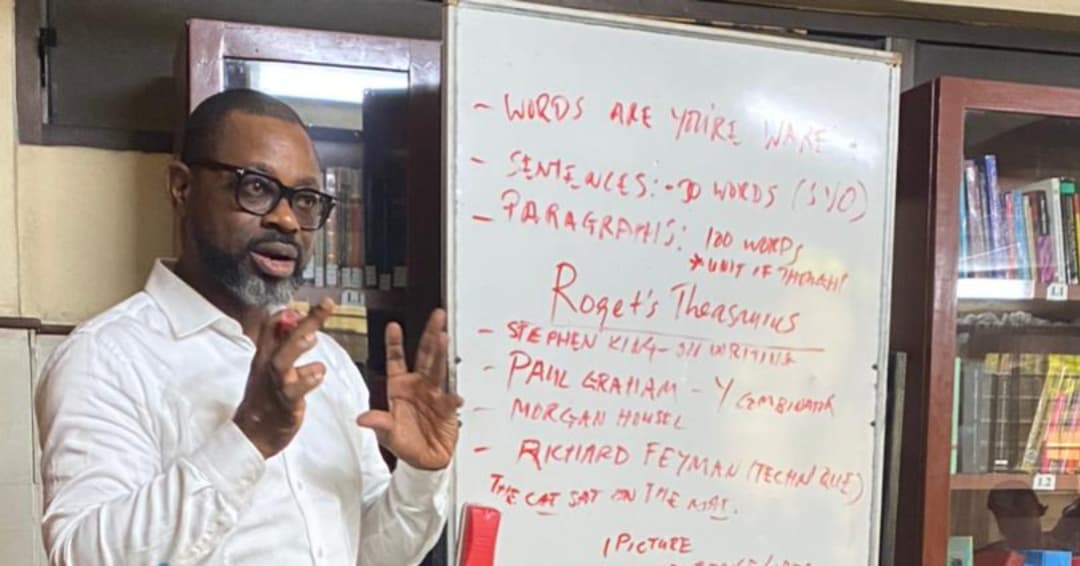 - WORDS ARE YOU'RE WARE
- SENTENCES:
WORDS
- PARAGRAPHS: 100 WORDS
* UNIT OF THOUGHT
Roget's
- STEPHEN KING - ON WRITING
- PAUL GRAHAM - Y COMBINATOR
- MORGAN HOUSEL
- RICHARD FEYMAN (TECHNIQUE)
THE CAT SAT ON THE MAT.
1 PICTURE
L1
L2